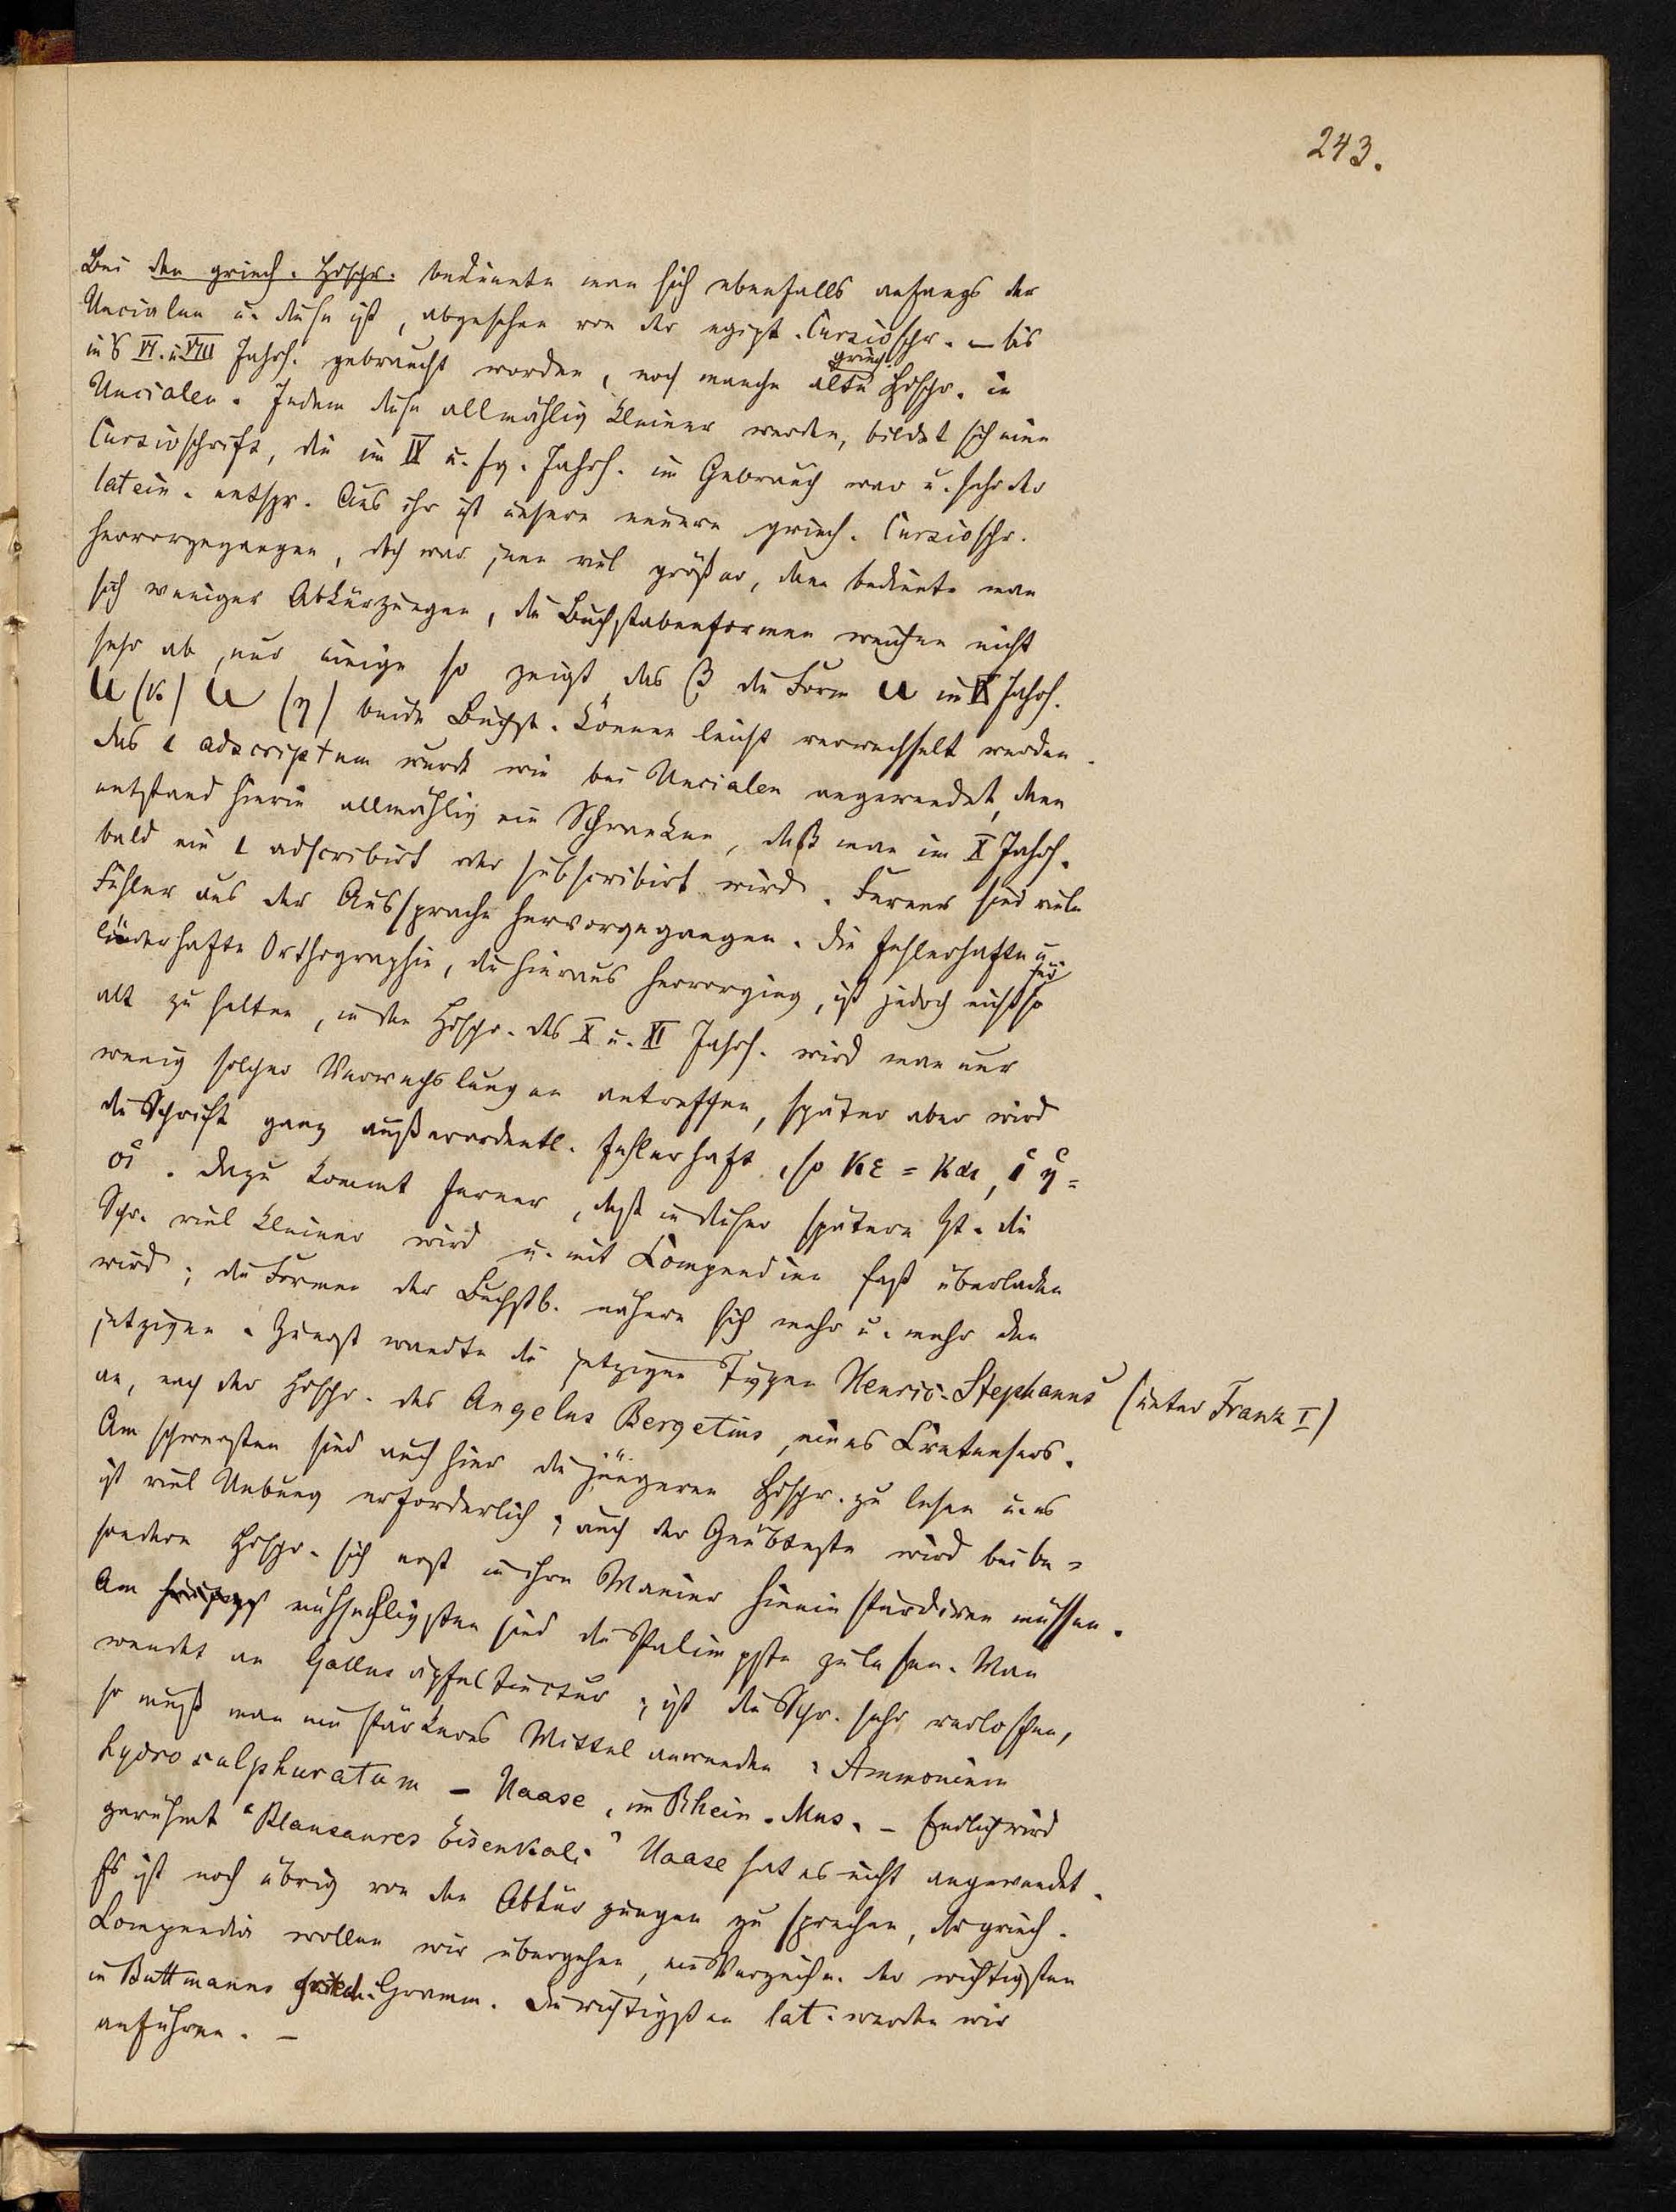 243.
Bei den griech. Hdschr. bediente man sich ebenfalls anfangs der
Uncialen u. diese ist, abgesehen von der egipt. Cursivschr. – bis
ins VI. u. VIII Jahrh. gebraucht worden, noch manche alte griech. Hdschr. in
Uncialen. Indem diese allmählig kleiner werden, bildet sich eine
Cursivschrift, die im IX u. fg. Jahrh. im Gebrauch war u. sehr der
latein. entspr. Aus ihr ist unsere neuere griech. Cursivschr.
hervorgegangen, doch war jene viel größer, dann bediente man
sich weniger Abkürzungen, die Buchstabenformen weichen nicht
sehr ab, nur einige so zeigt das β die Form u im IX Jahrh.
u (κ) u (η) beide Buchst. können leicht verwechselt werden.
Das ι adscriptum wurde wie bei Uncialen angewendet, dann
entstand hierin allmählig ein Schwanken, daß man im X Jahrh.
bald ein ι adscribirt oder subscribirt wird. Ferner sind viele
Fehler aus der Aussprache hervorgegangen. Die fehlerhafte u.
liederhafte Orthographie, die hieraus hervorging, ist jedoch nicht so
alt zu halten, in den Hdschr. des X u. XI Jahrh. wird man nur
wenig solcher Verwechslungen antreffen, später aber wird
die Schrift ganz außerordentl. fehlerhaft, so κε = και,
οἱ. Dazu kommt ferner, daß in dieser spätern Zt. die
Schr. viel kleiner wird u. mit Compendien fast überladen
wird; die Formen der Buchstb. nähern sich mehr u. mehr den
jetzigen. Zuerst wandte die jetzigen Typen Henric. Stephanus (unter Franz I)
an, nach der Hdschr. des Angelus Bergetius, eines Cretensers.
Am schwersten sind auch hier die jüngeren Hdschr. zu lesen u. es
ist viel Uebung erforderlich; auch der Geübteste wird bei be-
sondern Hdschr. sich erst in ihre Manier hinein studiren müssen.
Am mühseligsten sind die Palimpste zu lesen. Man
wendet an Gallus äpfeltinctur; ist die Schr. sehr verloschen,
so muß man ein stärkeres Mittel anwenden: Ammonium
hydrosulphuratum – Haase, im Rhein. Mus. – Endlich wird
gerühmt "Blausaures Eisenkali" Haase hat es nicht angewendet.
Es ist noch übrig von den Abkürzungen zu sprechen, der griech.
Compendia wollen wir übergehen, ein Verzeichn. der wichtigsten
in Buttmanns griech. Gramm. Die wichtigsten lat. werden wir
anführen. –